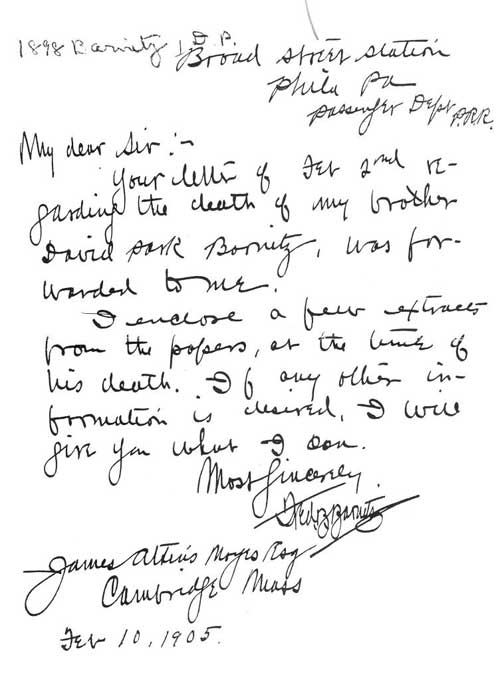 1898 Barnitz, D. P.
Broad Street Station
Phila Pa
Passenger Dept P.R.R.
My dear Sir:-
Your letter of Feb 2nd re-
garding the death of my brother
David Park Barnitz, was for-
warded to me.
I enclose a few extracts
from the papers, at the time of
his death. If any other in-
formation is desired, I will
give you what I can.
Most Sincerely,
Barnitz
James Atkins Noyes Esq
Cambridge Mass
Feb 10, 1905.